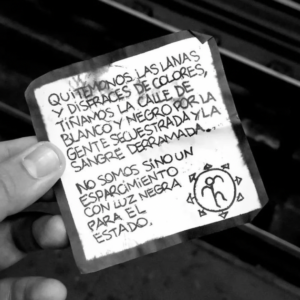 QUITEMONOS LAS LANAS
Y DISFRACES DE COLORES,
TIÑAMOS LA CALLE DE
BLANCO Y NEGRO POR LA
GENTE SECUESTRADA Y LA
SANGRE DERRAMADA...
NO SOMOS SINO UN
ESPARCIMIENTO
CON LUZ NEGRA
PARA EL
ESTADO.